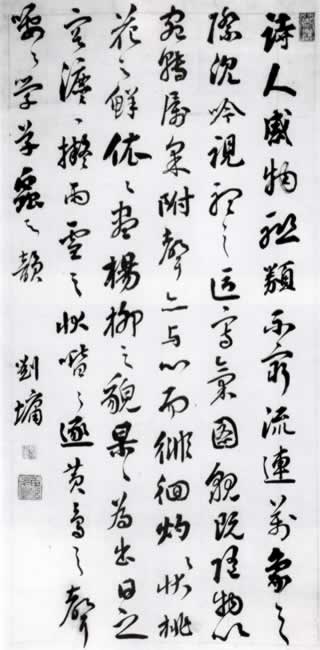 詩人感物聯類不窮流連萬象之
際沈吟視聽之區寫氣圖貌既隨物以
宛轉屬采附聲亦与心而徘徊灼々狀桃
花之鮮依々盡楊柳之貌杲々為出日之
容瀌々擬雨雪之狀喈々逐黃鳥之聲
喓々学草蟲之韻
劉墉